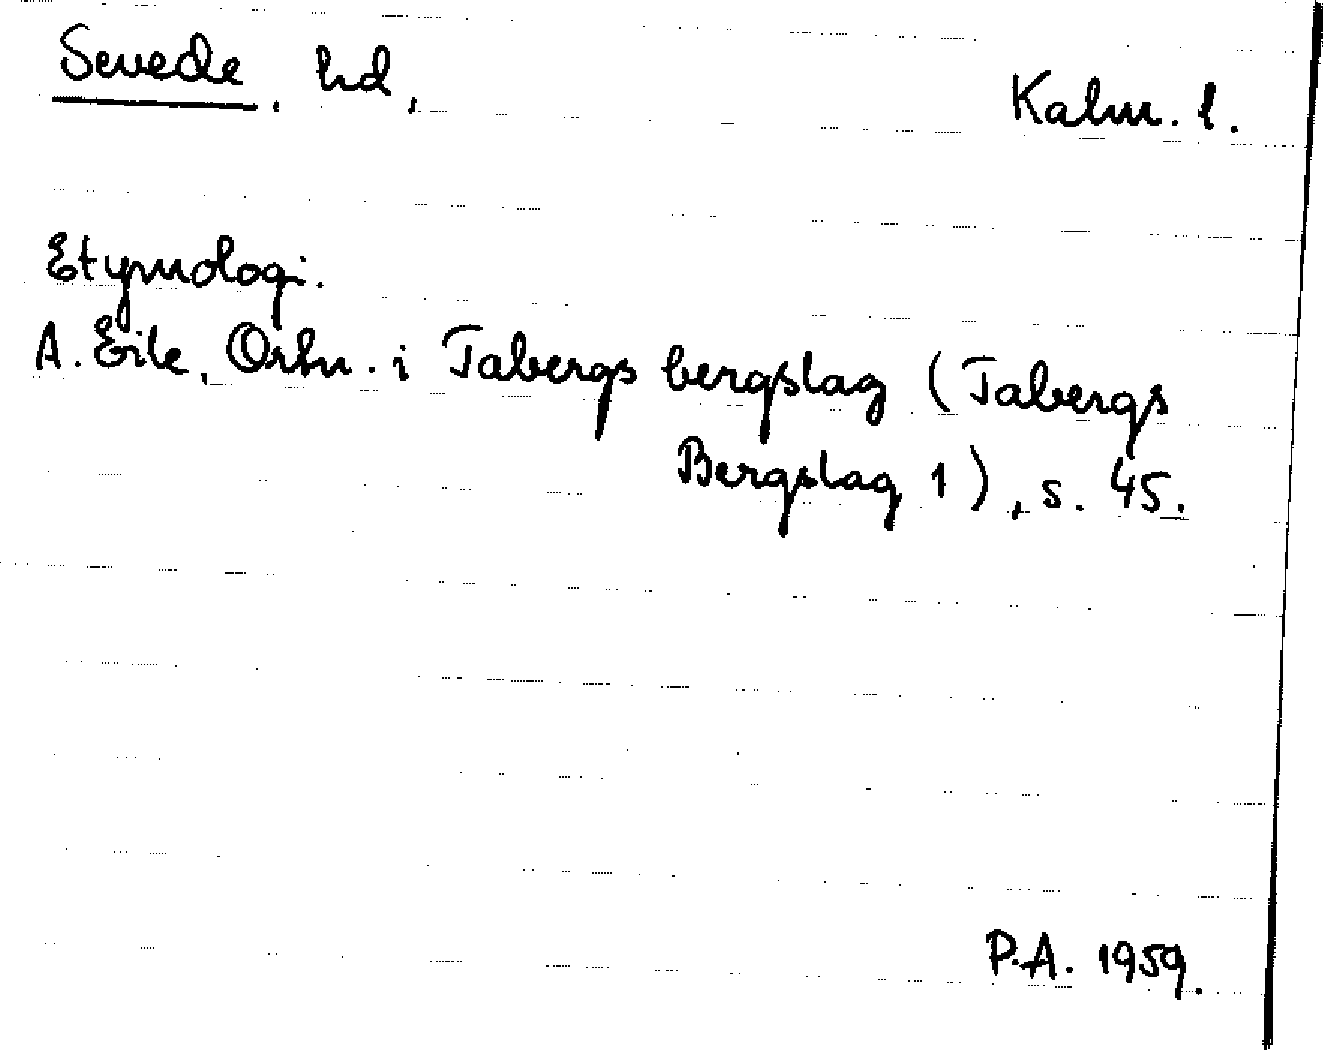 Sevede, hd, Kalm. l.
Etymologi.
A. Ejle, Ortn. i Tabergs bergslag (Tabergs
Bergslag 1), s. 45.
P.A. 1959.